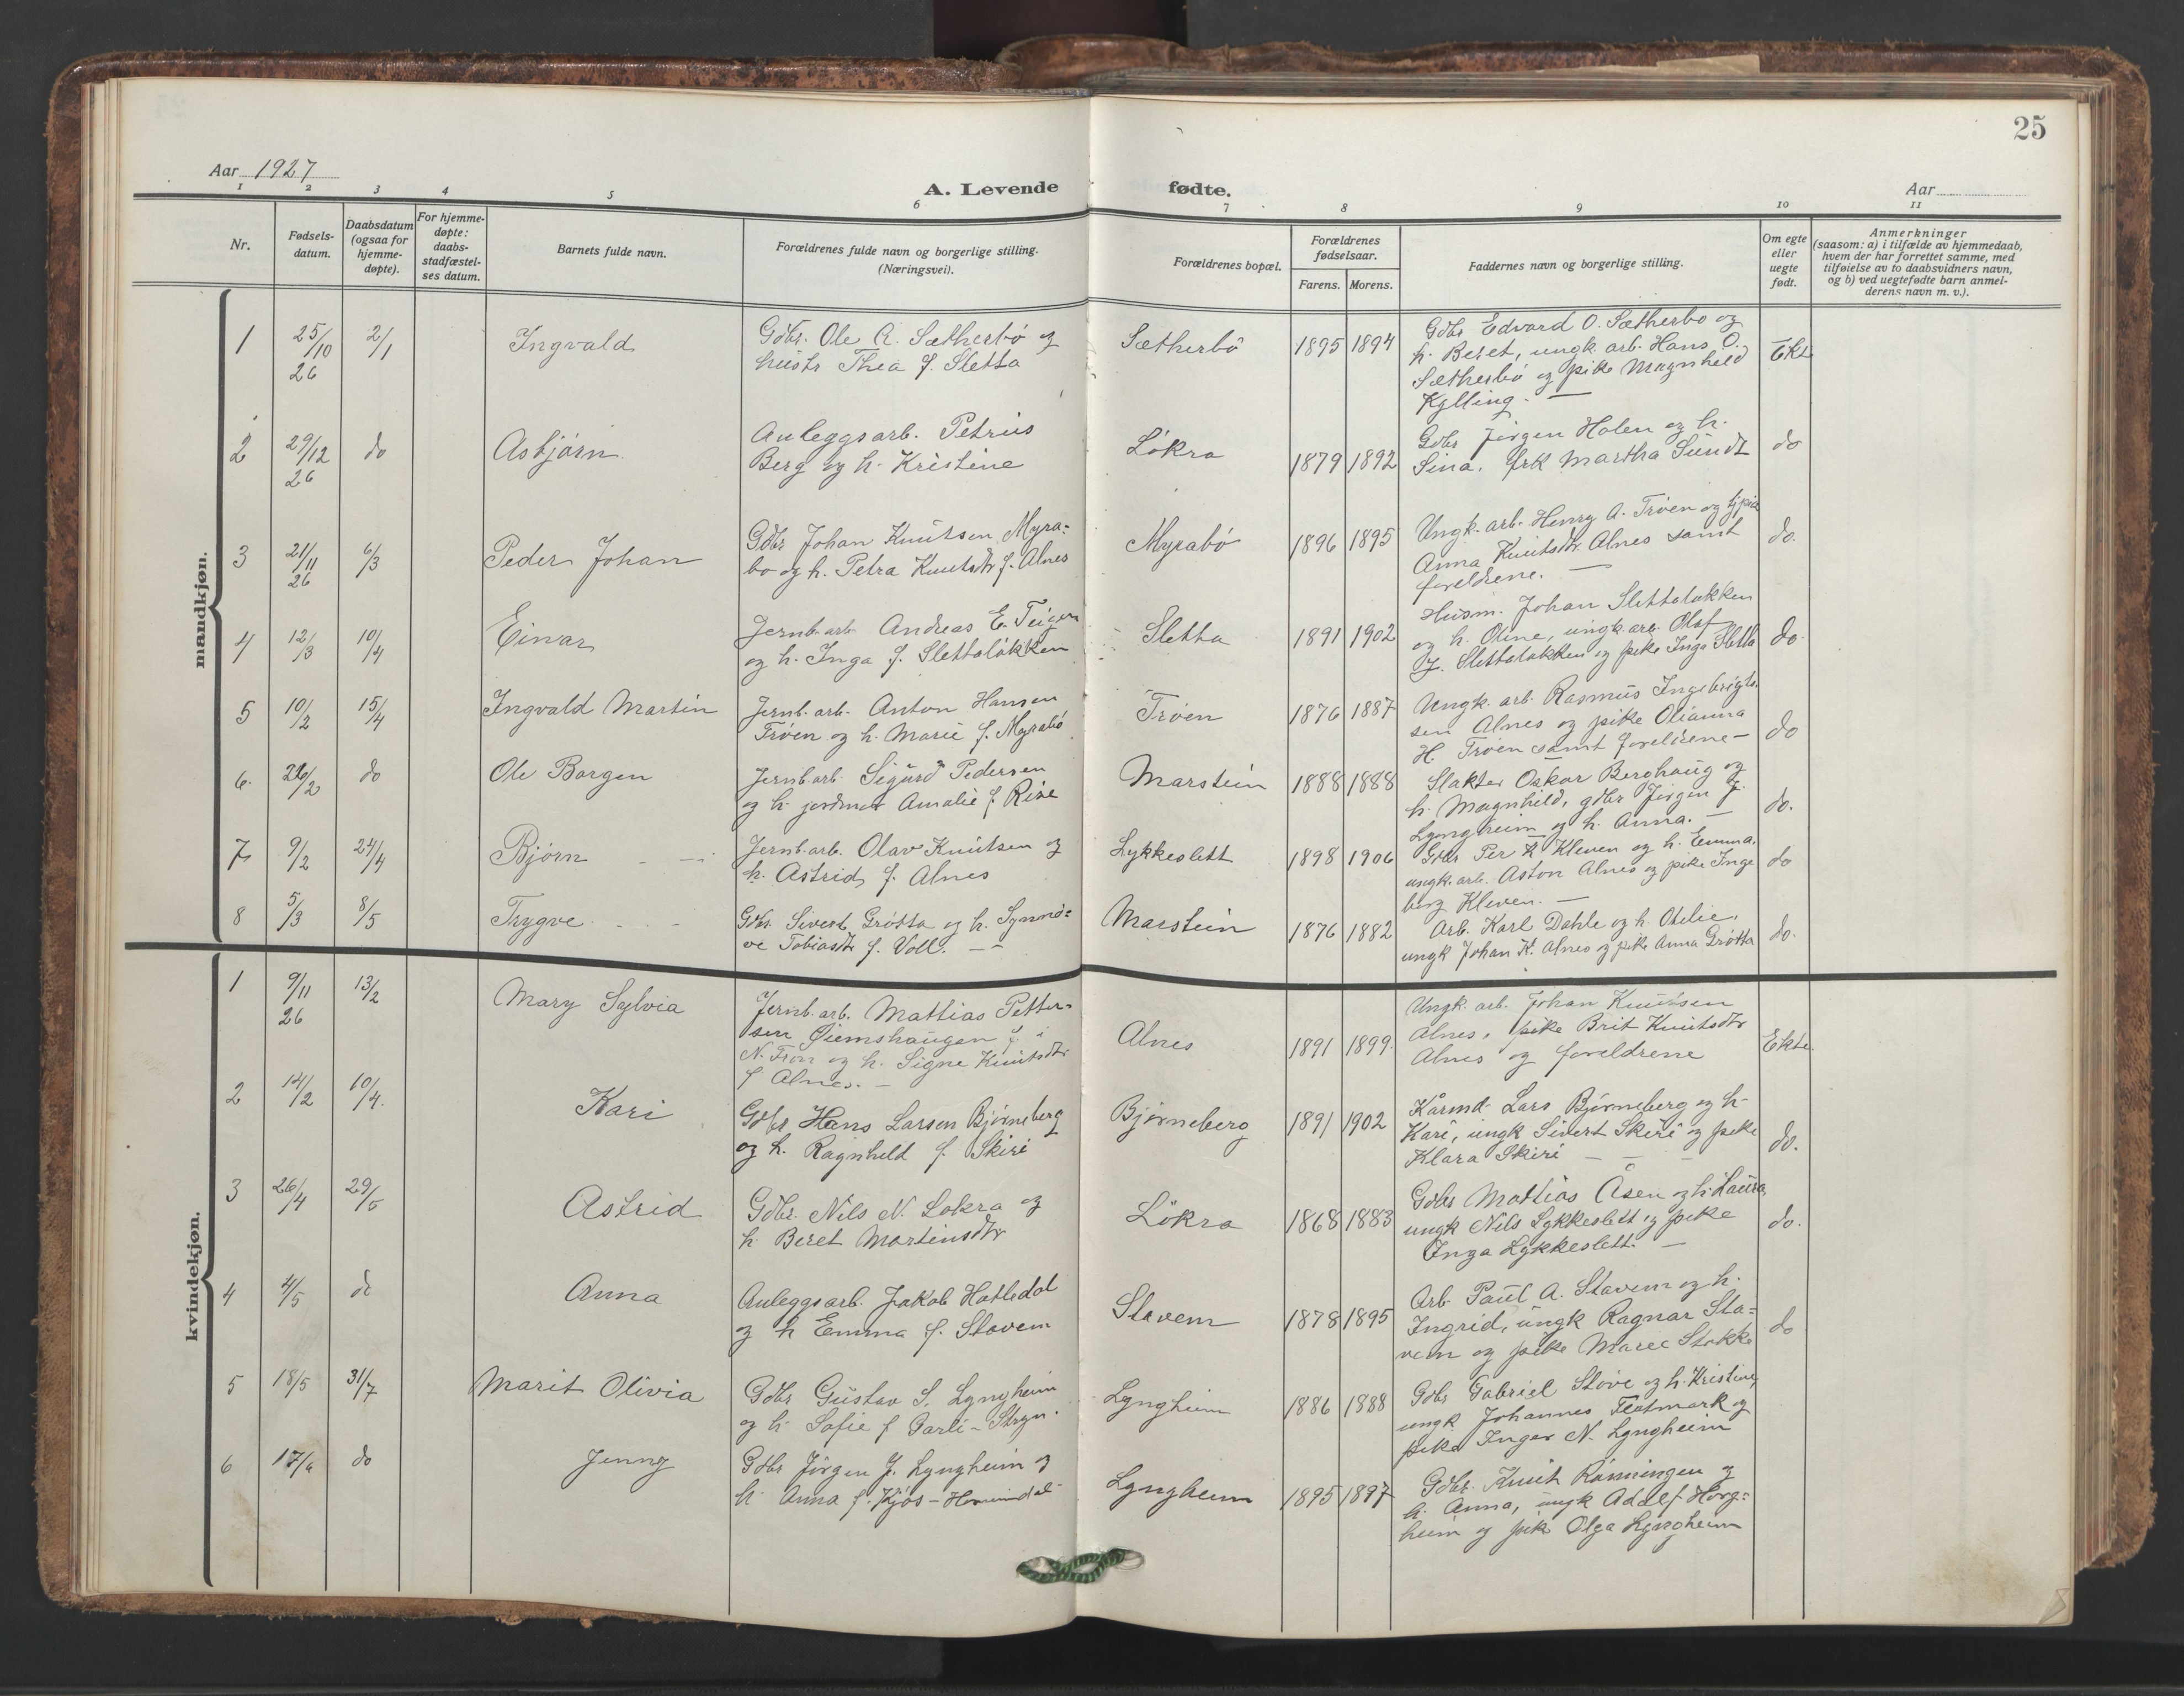 25
Aar 1927
A. Levende fødte.
Aar
1 2 3 4 5 6 7 8 9 10 11
Nr.
Fødsels-
datum.
Daabsdatum
(ogsaa for
hjemme-
døpte).
For hjemme-
døpte:
daabs-
stadfæstel-
ses datum.
Barnets fulde navn.
Forældrenes fulde navn og borgerlige stilling.
(Næringsvei).
Forældrenes bopæl.
Forældrenes
fødselsaar.
Farens. Morens.
Faddernes navn og borgerlige stilling.
Om egte
eller
uegte
født.
Anmerkninger
(saasom: a) i tilfælde av hjemmedaab,
hvem der har forrettet samme, med
tilføielse av to daabsvidners navn,
og b) ved uegtefødte barn anmel-
derens navn m. v.).
mandkjøn.
1 25/10 26 2/1 Ingvald
Gdbr. Ole A. Sætherbö og
hustr Thea f. Sletta
Sætherbö 1895 1894
Gdbr Edvard O. Sætherbo og
h. Beret, ungk. arb. Hans O.
Sætherbö og pike Magnhild
Kylling. —
Ekte
2 29/12 26 do Asbjörn
Anleggsarb. Petrus
Berg og h. Kristine
Lökra 1879 1892
Gdbr Jörgen Holen og h.
Sina. frk Martha Sundt
do
3 21/11 26 6/3 Peder Johan
Gdbr Johan Knutsen Myra-
bo og h. Petra Knutsdtr f. Alnes
Myrabö 1896 1895
Ungk. arb. Henry A. Tröen og
Anna Knutsdtr. Alnes samt
foreldrene. —
do.
4 12/3 10/4 Einar
Jernb. arb. Andreas E. Teigen
og h. Inga f. Slettalökken
Sletta 1891 1902
Husm. Johan Slettalökken
og h. Oline, ungk. arb. Olaf
J. Slettalökken og pike Inga Sletta
do.
5 10/2 15/4 Ingvald Martin
Jernb. arb. Anton Hansen
Tröen og h. Marie f. Myrabö
Tröen 1876 1887
Ungk. arb. Rasmus Ingebrigts.
sen Alnes og pike Olianna
H. Tröen samt foreldrene —
do
6. 26/2 do Ole Borgen
Jernb arb. Sigurd Pedersen
og h. jordmor Amalie f. Rise
Marstein 1888 1888
Slakter Oskar Berghaug og
h. Magnhild, gdbr Jörgen J.
Lyngheim og h. Anna. —
do.
7 9/2 24/4 Björn
Jernb. arb. Olav Knutsen og
h. Astrid f. Alnes
Lykkeslett 1898 1906
Gdbr Per K Kleven og h. Emma,
ungk. arb. Aston Alnes og pike Inge
berg Kleven. —
do
8 5/3 8/5 Trygve
Gdbr. Sivert Grötta og h. Synnö-
ve Tobiasdtr f. Voll. — —
Marstein 1876 1882
Arb. Karl Dahle og h. Otilie,
ungk Johan K. Alnes og pike Anna Grötta
do.
kvindekjøn.
1 9/11 26 13/2 Mary Sylvia
Jernb. arb. Mattias Petter-
sen Öiemshaugen f. i
N. Fron og h. Signe Knutsdtr
f Alnes. —
Alnes 1891 1899.
Ungk. arb. Johan Knutsen
Alnes, pike Brit Knutsdtr
Alnes og foreldrene
Ekte.
2 14/2 10/4. Kari
Gdbr Hans Larsen Björneberg
og h. Ragnhild f. Skiri
Björneberg 1891 1902
Kårmd. Lars Björneberg og h.
Kari, ungk Sivert Skiri og pike
Klara Skiri — — —
do.
3 26/4 29/5 Astrid
Gdbr. Nils N. Lökra og
h. Beret Martinsdtr
Lökra 1868 1883
Gdbr Mattias Åsen og h. Laura,
ungk Nils Lykkeslett og pike
Inga Lykkeslett. —
do.
4 4/5 do Anna
Anleggsarb. Jakob Hatledal
og h Emma f. Stavem
Stavem 1878 1895
Arb. Paul A. Stavem og h.
Ingrid, ungk Ragnar Sta-
vem og pike Marie Stokke
do
5 18/5 31/7 Marit Olivia
Gdbr Gustav S. Lyngheim
og h. Sofie f
Lyngheim 1886 1888
Gdbr Gabriel Störe og h. Kristine,
ungk Johannes Flatmark og
pike Inger N. Lyngheim
6 17/6 do Jenny
Gdbr Jörgen J. Lyngheim og
h. Anna f. Kjös -
Lyngheim 1895 1897
Gdbr. Knut Rönningen og
h. Anna, ungk Adolf Horg-
heim og pike Olga Lyngheim